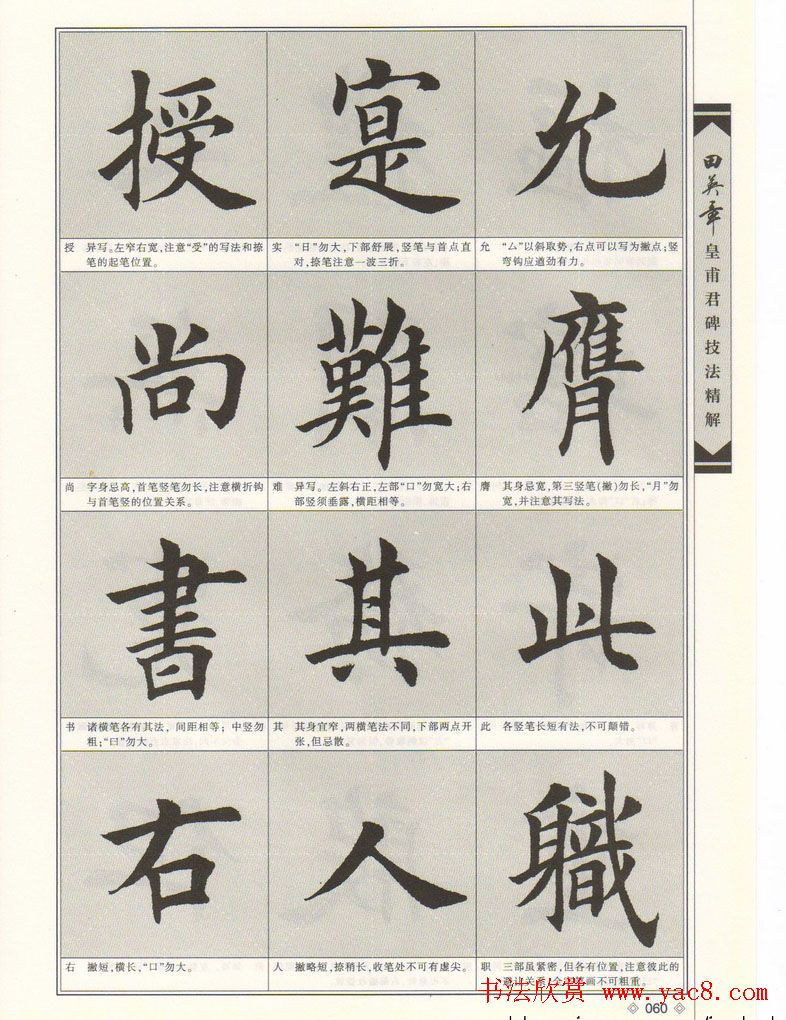 允
允 “厶”以斜取势,右点可以写为撇点;竖
弯钩应遒劲有力。
膺
膺 其身忌宽,第三竖笔(撇)勿长,“月”勿
宽,并注意其写法。
此
此 各竖笔长短有法,不可颠错。
軄
职 三部虽紧密,但各有位置,注意彼此的
避让关系,全字笔画不可粗重。
寔
实 “日”勿大,下部舒展,竖笔与首点直
对,捺笔注意一波三折。
難
难 异写。左斜右正,左部“口”勿宽大;右
部竖须垂露,横距相等。
其
其 其身宜窄,两横笔法不同,下部两点开
张,但忌散。
人
人 撇略短,捺稍长,收笔处不可有虚尖。
授
授 异写。左窄右宽,注意“受”的写法和捺
笔的起笔位置。
尚
尚 字身忌高,首笔竖笔勿长,注意横折钩
与首笔竖的位置关系。
書
书 诸横笔各有其法,间距相等;中竖勿
粗;“曰”勿大。
右
右 撇短,横长,“口”勿大。
田英章
皇甫君碑技法精解
书法欣赏 www.yac8.com
060